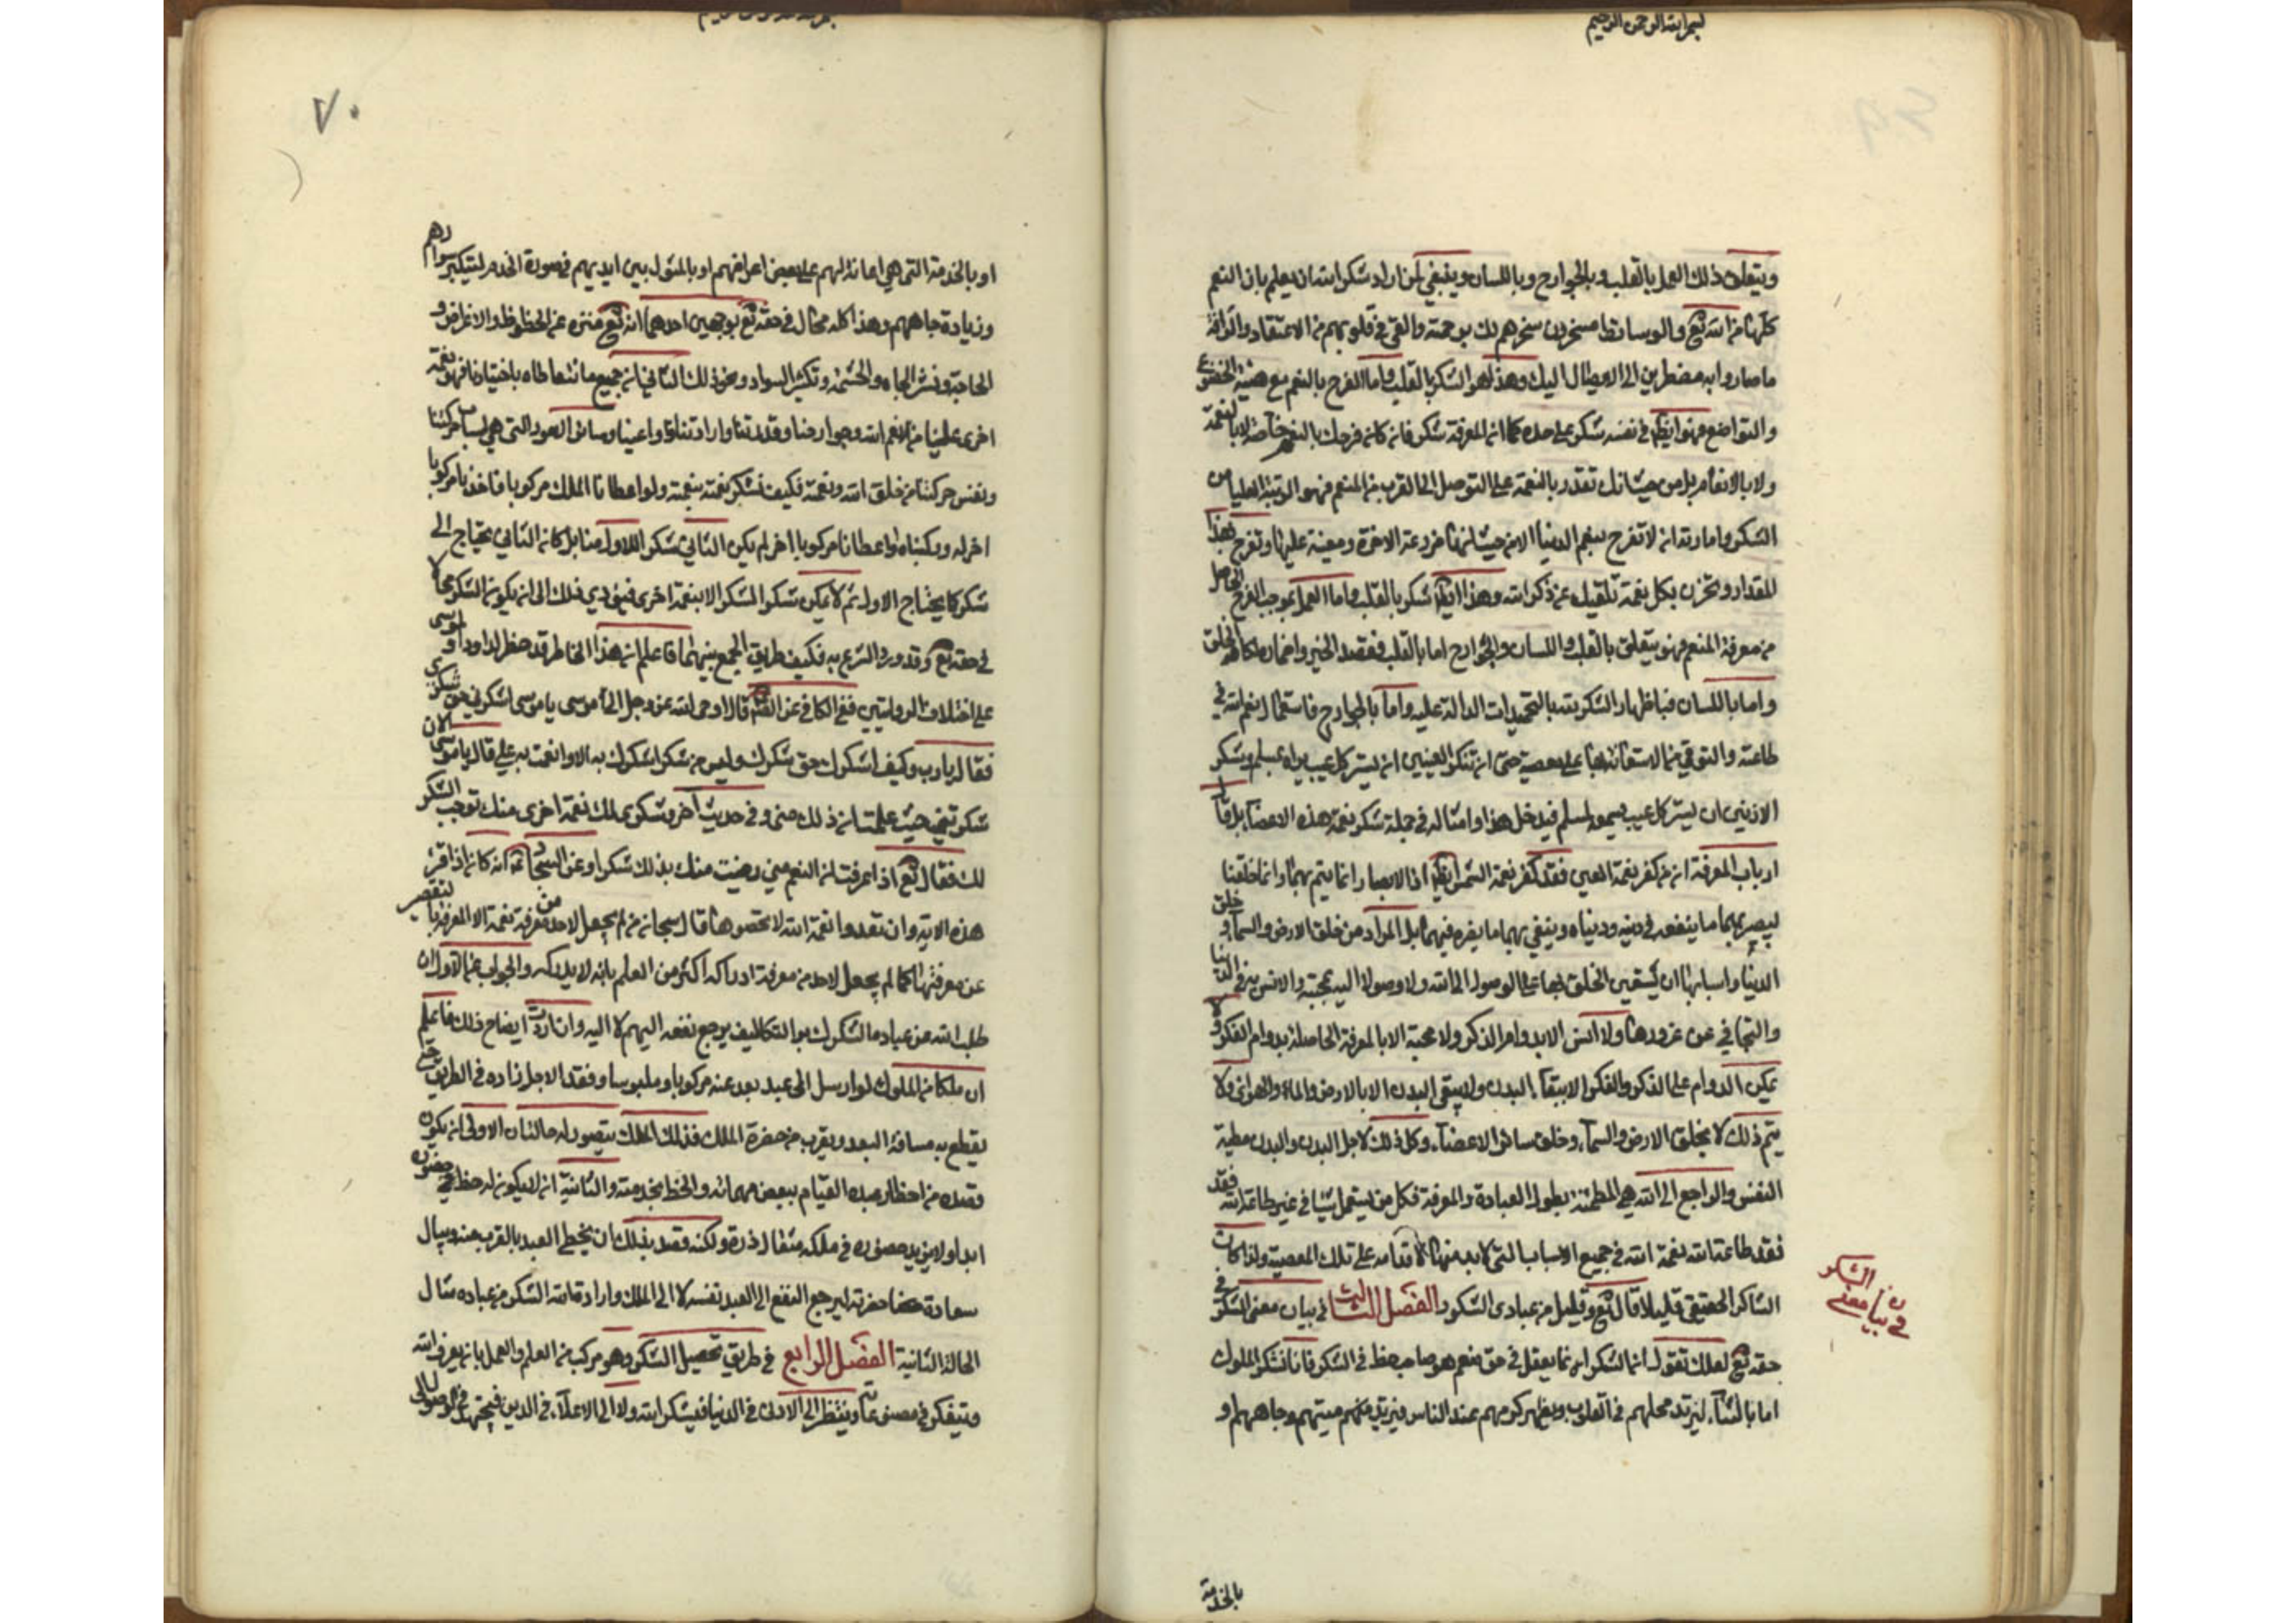 بسم الله الرحمن الرحيم
ويتعلق ذلك العمل بالقلب وبالجوارح وباللسان وينبغي لمن اراد شكر الله ان يعلم بان النعم
كلها من الله تع والوسائط مسخرون سخرهم لك برحمته والقى في قلوبهم من الاعتقاد والرافة
ما صاروا به مضطرين الى الايصال اليك وهذا هو الشكر بالقلب واما الفرح بالنعم مع هيئة الخضوع
والتواضع فهو ايضا في نفسه شكر على حده كما ان المعرفة شكر فان كان فرحك بالنعم خاصة لا بالنعمة
ولا بالانعام بل من حيث انك تقدر بالنعمة على التوصل الى القرب من المنعم فهو الرتبة العليا من
الشكر واما رتد انه لا تفرح بنعم الدنيا الا من حيث انها مزرعة الاخرة ومعينة عليها وتفرح بهذا
المقدار وتحزن بكل نعمة تلهيك عن ذكر الله وهذا ايضا شكر بالقلب واما العمل بموجب الفرح الحاصل
من معرفة المنعم فهو يتعلق بالقلب واللسان والجوارح اما بالقلب فقصد الخير واضماره لكافة الخلق
واما باللسان فباظهار الشكر لله بالتحميدات الدالة عليه واما بالجوارح فاستعمال نعم الله في
طاعته والتوقي من الاستعانة بها على معصيته حتى ان شكر العينين ان يستر كل عيب يراه لمسلم وشكر
الاذنين ان يستر كل عيب يسمعه لمسلم فيدخل هذا وامثاله في جملة شكر نعمة هذه الاعضاء بل قال
ارباب المعرفة ان من كفر نعمة العين فقد كفر نعمة الشمس ايضا اذ الابصار انما يتم بهما وانما خلقتا
ليبصر بهما ما ينفعه في دينه ودنياه ويتقي بهما ما يضره فيهما بل المراد من خلق الارض والسماء وخلق
الدنيا واسبابها ان يستعين الخلق بها على الوصول الى الله ولا وصول اليه الا بمحبته والانس به في الدنيا
والتجافي عن غرورها ولا انس الا بدوام الذكر ولا محبة الا بالمعرفة الحاصلة بدوام الفكر ولا
يمكن الدوام على الذكر والفكر الا ببقاء البدن ولا يبقى البدن الا بالارض والماء والهواء ولا
يتم ذلك الا بخلق الارض والسماء وخلق سائر الاعضاء وكل ذلك لاجل البدن والبدن مطية
النفس والراجع الى الله هي المطمئنة بطول العبادة والمعرفة فكل من استعمل شيئا في غير طاعة الله فقد
فقد طاعة الله نعمة الله في جميع الاسباب التي لا بد منها لاقدامه على تلك المعصية ولذا كان
الشاكر الحقيقي قليلا قال تع وقليل من عبادي الشكور الفصل الثالث في بيان معنى الشكر في
حقه تع لعلك تقول انما الشكر انما يعقل في حق منعم هو صاحب حظ في الشكر فانا نشكر الملوك
اما بالثناء ليزيد محلهم في القلوب ويظهر كرمهم عند الناس فيزيد صيتهم وجاههم او
في بيان معنى الشكر
بالخدمة
٧٠
او بالخدمة التي هي اعانة لهم على بعض اغراضهم او بالمثول بين ايديهم في صورة الخدم لتكثير سوادهم
وزيادة جاههم وهذا كله محال في حقه تع بوجهين احدهما انه تع منزه عن الحظوظ والاغراض و
الحاجة ونشر الجاه والحشمة وتكثير السواد ونحو ذلك الثاني ان جميع ما نتعاطاه باختيارنا فهو نعمة
اخرى علينا من نعم الله وجوارحنا وقدرتنا وارادتنا وداعينا وسائر الامور التي هي اسباب حركتنا
ونفس حركتنا من خلق الله ونعمته فكيف نشكر نعمته بنعمته ولو اعطانا الملك مركوبا فاخذنا مركوبا
اخر له وركبناه او اعطانا مركوبا اخر لم يكن الثاني شكر اللاول منا بل كان الثاني يحتاج الى
شكر كما يحتاج الاول ثم لا يمكن شكر الشكر الا بنعمة اخرى فيؤدي ذلك الى ان يكون الشكر محالا
في حقه تع وقد ورد الشرع به فكيف طريق الجمع بينهما فاعلم ان هذا الخاطر قد خطر لداود او موسى
على اختلاف الروايتين ففي الكافي عن الصم قال اوحى الله عز وجل الى موسى يا موسى اشكرني حق شكري
فقال يا رب وكيف اشكرك حق شكرك وليس من شكر اشكرك به الا وانعمت به علي قال يا موسى الان
شكرتني حيث علمت ان ذلك مني وفي حديث اخر وشكري لك نعمة اخرى منك توجب الشكر
لك فقال تع اذا عرفت ان النعم مني رضيت منك بذلك شكرا وعن السجاد ع انه كان اذا قرئ
هذه الاية وان تعدوا نعمة الله لا تحصوها قال سبحان من لم يجعل لاحد من معرفة نعمه الا المعرفة بالتقصير
عن معرفتها كما لم يجعل لاحد من معرفة ادراكه اكثر من العلم بانه لا يدركه والجواب عن الاول ان
طلب الله من عباده الشكر بل والتكاليف يرجع نفعه اليهم لا اليه وان اردت ايضاح ذلك فاعلم
ان ملكا من الملوك لو ارسل الى عبد بعد عنه مركوبا وملبوسا ونقدا لاجل زاده في الطريق حتى
يقطع به مسافة البعد ويقرب من حضرة الملك فذلك الملك يتصور له حالتان الاولى ان يكون
قصده من احضار عبده القيام ببعض مهماته والحظ بخدمته والثانية ان لا يكون له حظ في حضوره
ابدا ولا يزيد حضوره في ملكه مثقال ذرة ولكنه قصد بذلك ان يحظى العبد بالقرب منه وينال
سعادة حضرته ليرجع النفع الى العبد نفسه لا الى الملك وارادة الله الشكر من عباده مثال
الحالة الثانية الفصل الرابع في طريق تحصيل الشكر وهو مركب من العلم والعمل بانه يعرف الله
ويتفكر في مصنوعاته وينظر الى الادنى في الدنيا فيشكر الله ولا الى الاعلى في الدين فيجتهد في الوصول الى